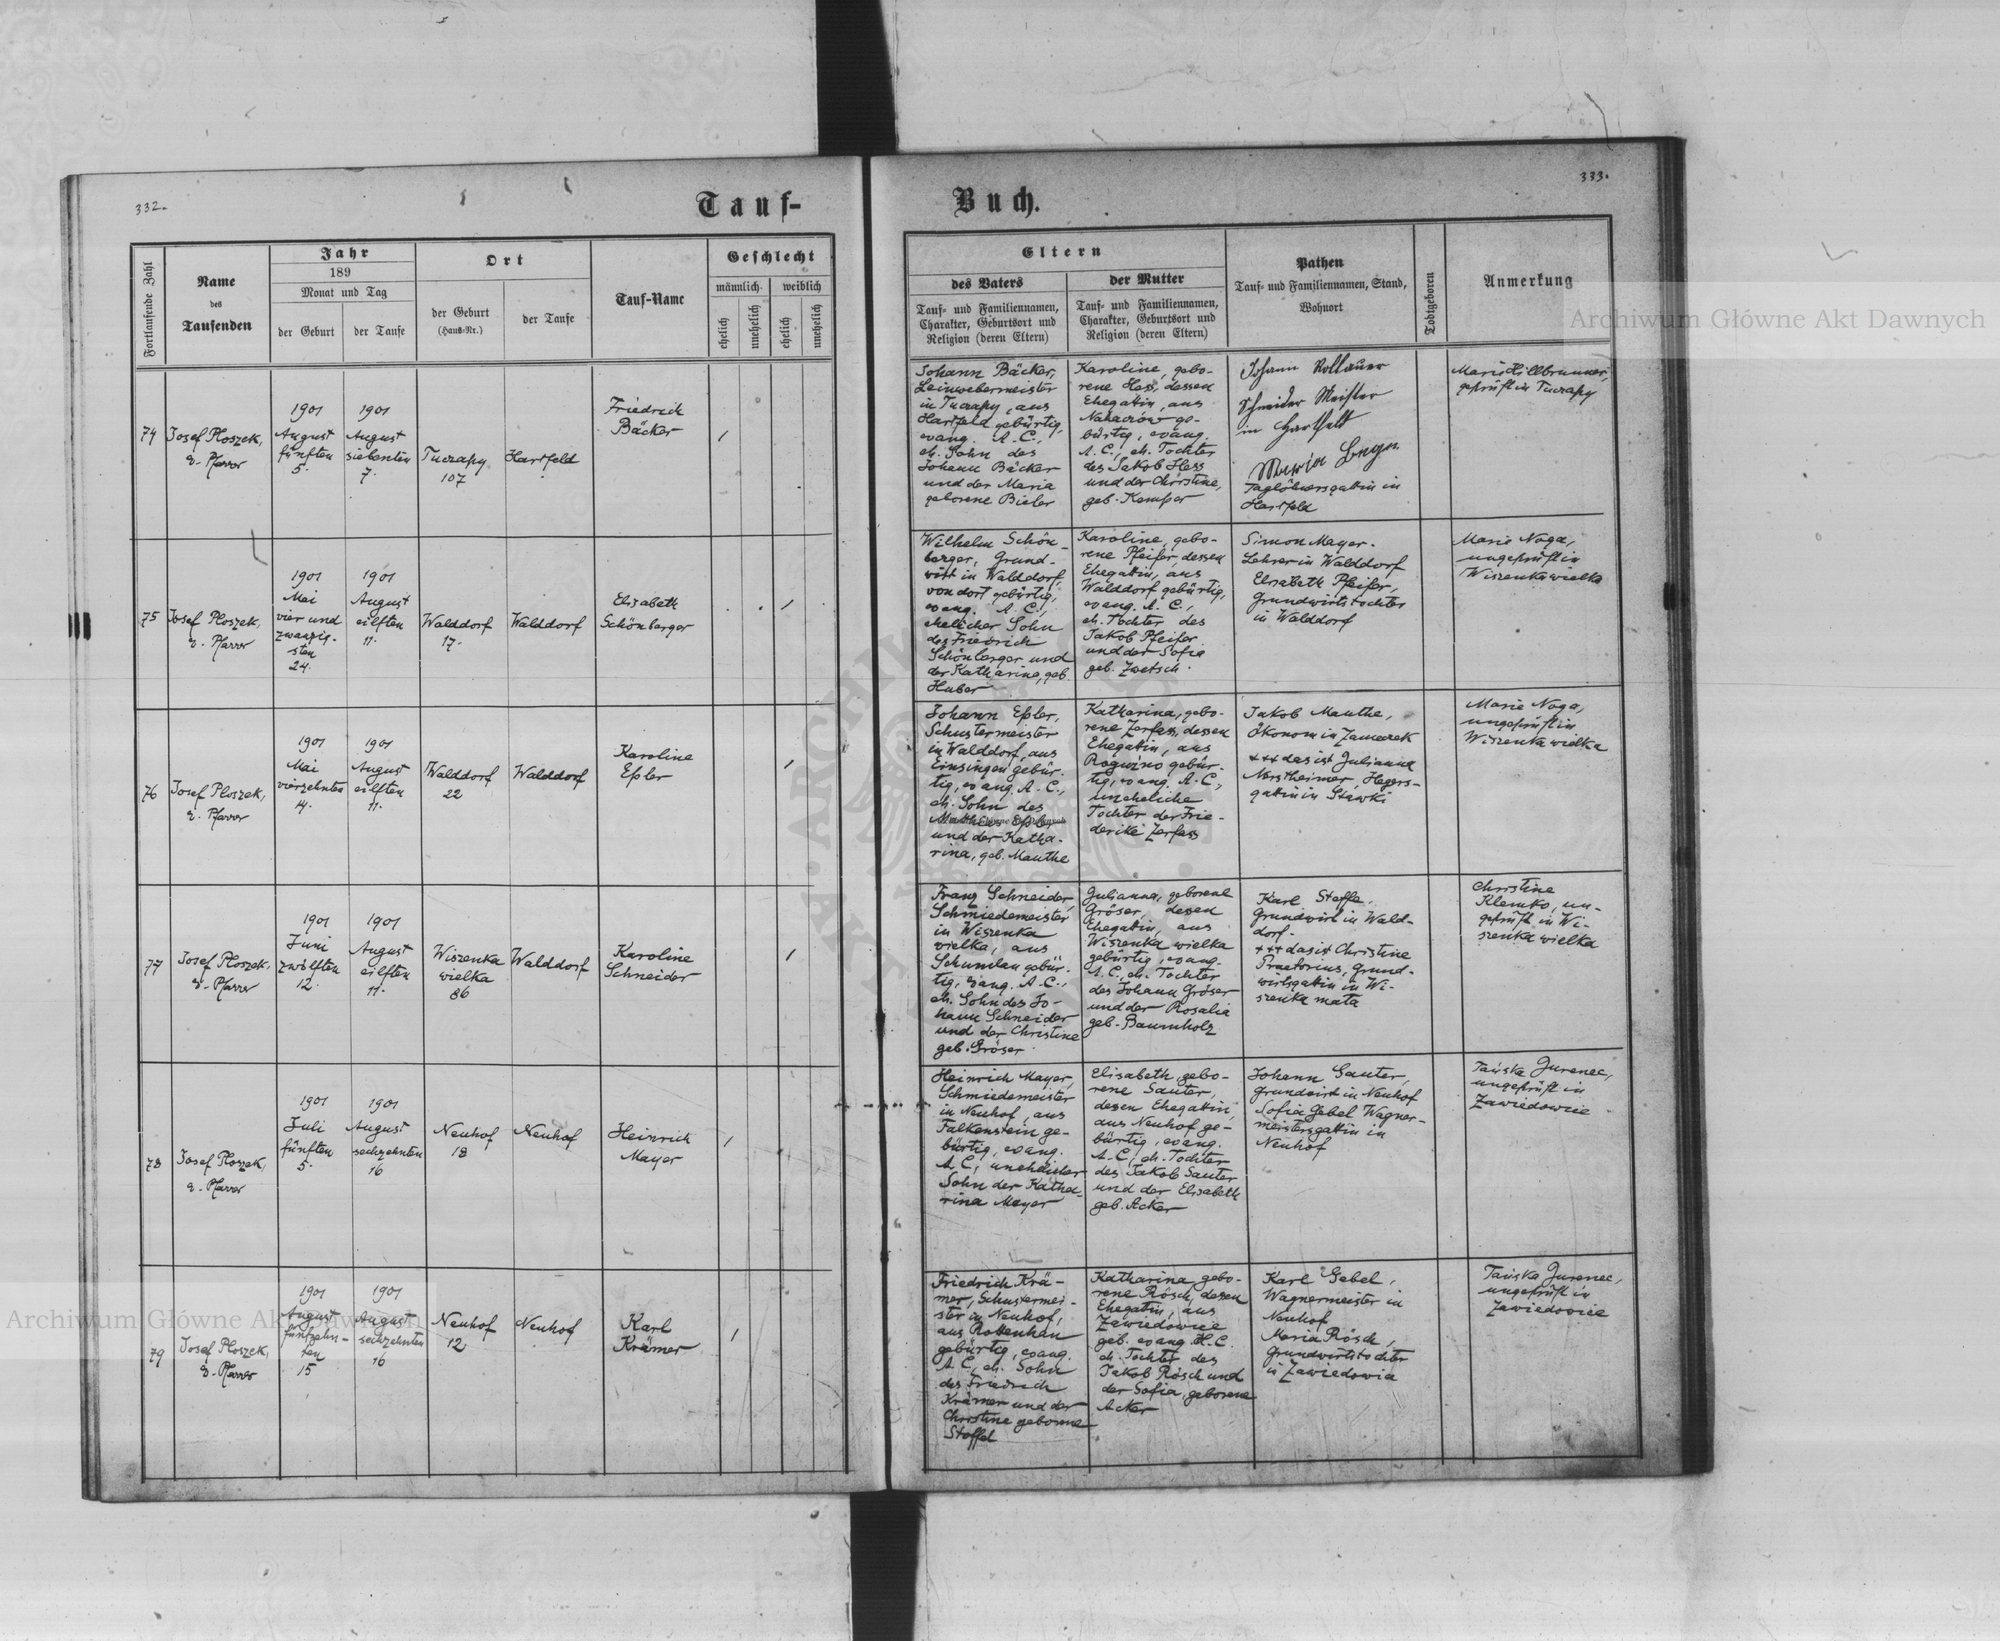 332.
Tauf-
Buch.
333.
Fortlaufende Zahl
Name
des
Taufenden
Jahr
189
Monat und Tag
der Geburt
der Taufe
Ort
der Geburt
(Haus-Nr.)
der Taufe
Tauf-Name
Geschlecht
männlich
weiblich
ehelich
unehelich
ehelich
unehelich
Eltern
des Vaters
Tauf- und Familiennamen,
Charakter, Geburtsort und
Religion (deren Eltern)
der Mutter
Tauf- und Familiennamen,
Charakter, Geburtsort und
Religion (deren Eltern)
Pathen
Tauf- und Familiennamen, Stand,
Wohnort
Todtgeboren
Anmerkung
74
Josef Ploszek,
e. Pfarrer
1901
August
fünften
5.
1901
August
siebenten
7.
Tuczapy
107
Hartfeld
Friedrich
Bäcker
Johann Bäcker,
Leinwebermeister
in Tuczapy, aus
Hartfeld gebürtig,
evang. A. C.,
eh. Sohn des
Johann Bäcker
und der Maria
geborene Bieler
Karoline, gebo-
rene Hess, dessen
Ehegattin, aus
ge-
bürtig, evang.
A. C., eh. Tochter
des Jakob Hess
und der Christine,
geb. Kemper
Johann
Schneider Meister
in Hartfeld
Maria
Taglöhnersgattin in
Hartfeld
Marie Hillbrunner,
geprüft in Tuczapy
75
Josef Ploszek,
e. Pfarrer
1901
Mai
vier und
zwanzig-
sten
24.
1901
August
eilften
11.
Walddorf
17.
Walddorf
Elisabeth
Schönberger
Wilhelm Schön-
berger, Grund-
wirt in Walddorf,
von dort gebürtig,
evang. A. C.,
ehelicher Sohn
des Friedrich
Schönberger und
der Katharina, geb.
Huber
Karoline, gebo-
rene Pfeifer, dessen
Ehegattin, aus
Walddorf gebürtig,
evang. A. C.,
eh. Tochter des
Jakob Pfeifer
und der Sofia
geb. Zwetsch.
Simon Mayer.
Lehrer in Walddorf
Elisabeth Pfeifer,
Grundwirtstochter
in Walddorf
Marie Noga,
ungeprüft in
Wiszenka wielka
76
Josef Ploszek,
e. Pfarrer
1901
Mai
vierzehnten
14.
1901
August
eilften
11.
Walddorf
22
Walddorf
Karoline
Eßler
Johann Eßler,
Schustermeister
in Walddorf, aus
Einsingen gebür-
tig, evang. A. C.,
eh. Sohn des
Eßler
und der Katha-
rina, geb. Mauthe
Katharina, gebo-
rene Zerfass, dessen
Ehegattin, aus
Roguźno gebür-
tig, evang. A. C.,
uneheliche
Tochter der Frie-
derike Zerfass
Jakob Mauthe,
Ökonom in Zameczek
+++ das ist Julianna
Hegers-
gattin in Stawki
Marie Noga,
ungeprüft in
Wiszenka wielka
77
Josef Ploszek,
e. Pfarrer
1901
Juni
zwölften
12.
1901
August
eilften
11.
Wiszenka
wielka
86
Walddorf
Karoline
Schneider
Franz Schneider,
Schmiedemeister
in Wiszenka
wielka, aus
Schumlau gebür-
tig, evang. A. C.,
eh. Sohn des Jo-
hann Schneider
und der Christine
geb. Gröser
Julianna, geborene
Gröser, dessen
Ehegattin, aus
Wiszenka wielka
gebürtig, evang.
A. C., eh. Tochter
des Johann Gröser
und der Rosalia
geb. Baumholz
Karl Steffe,
Grundwirt in Wald-
dorf.
+++ das ist Christine
Praetorius, Grund-
wirtsgattin in Wi-
szenka mała
Christine
Klemko, un-
geprüft in Wi-
szenka wielka
78
Josef Ploszek,
e. Pfarrer
1901
Juli
fünften
5.
1901
August
sechzehnten
16
Neuhof
18
Neuhof
Heinrich
Mayer
Heinrich Mayer,
Schmiedemeister
in Neuhof, aus
Falkenstein ge-
bürtig, evang.
A. C., unehelicher
Sohn der Katha-
rina Mayer
Elisabeth, gebo-
rene Sauter,
dessen Ehegattin,
aus Neuhof ge-
bürtig, evang.
A. C., eh. Tochter
des Jakob Sauter
und der Elisabeth
geb. Acker
Johann Sauter,
Grundwirt in Neuhof
Sofia Gebel Wagner-
meistersgattin in
Neuhof
Tańska Jurenec,
ungeprüft in
Zawiedowice
79
Josef Ploszek,
e. Pfarrer
1901
August
fünfzehn-
ten
15
1901
August
sechzehnten
16
Neuhof
12
Neuhof
Karl
Krämer
Friedrich Krä-
mer, Schustermei-
ster in Neuhof,
aus Rottenhan
gebürtig, evang.
A. C., eh. Sohn
des Friedrich
Krämer und der
Christine geborene
Stoffel
Katharina, gebo-
rene Rösch, dessen
Ehegattin, aus
Zawiedowice
geb. evang. H. C.
eh. Tochter des
Jakob Rösch und
der Sofia, geborene
Acker
Karl Gebel,
Wagnermeister in
Neuhof
Maria Rösch,
Grundwirtstochter
in Zawiedowia
Tańska Jurenec,
ungeprüft in
Zawiedowice
Archiwum Główne Akt Dawnych
Archiwum Główne Akt Dawnych